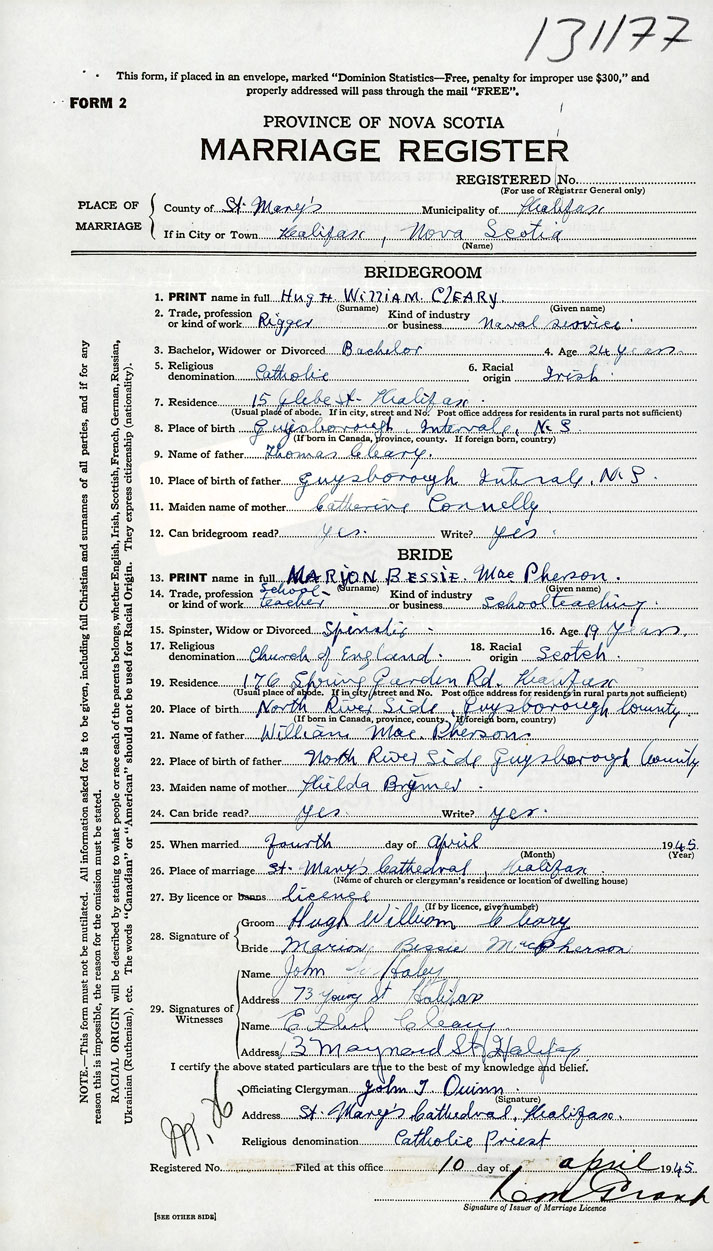 131177
This form, if placed in an envelope, marked "Dominion Statistics—Free, penalty for improper use $300," and
properly addressed will pass through the mail "FREE".
FORM 2
PROVINCE OF NOVA SCOTIA
MARRIAGE REGISTER
REGISTERED No.
(For use of Registrar General only)
PLACE OF MARRIAGE
County of St. Mary's Municipality of Halifax
If in City or Town Halifax, Nova Scotia
(Name)
BRIDEGROOM
1. PRINT name in full Hugh William Cleary
(Surname) (Given name)
2. Trade, profession or kind of work Rigger Kind of industry or business Naval service
3. Bachelor, Widower or Divorced Bachelor 4. Age 24 years
5. Religious denomination Catholic 6. Racial origin Irish
7. Residence 15 Glebe St. Halifax
(Usual place of abode. If in city, street and No. Post office address for residents in rural parts not sufficient)
8. Place of birth Guysborough, Intervale, N.S
(If born in Canada, province, county. If foreign born, country)
9. Name of father Thomas Cleary.
10. Place of birth of father Guysborough Intervale, N.S.
11. Maiden name of mother Catherine Connelly
12. Can bridegroom read? yes. Write? yes
BRIDE
13. PRINT name in full MARION BESSIE Mac Pherson.
(Surname) (Given name)
14. Trade, profession or kind of work School-teacher Kind of industry or business Schoolteaching.
15. Spinster, Widow or Divorced Spinster 16. Age 19 Years.
17. Religious denomination Church of England. 18. Racial origin Scotch.
19. Residence 176 Spring Garden Rd. Halifax
(Usual place of abode. If in city street and No. Post office address for residents in rural parts not sufficient)
20. Place of birth North River Side, Guysborough County
(If born in Canada, province, county. If foreign born, country)
21. Name of father William Mac. Pherson
22. Place of birth of father North River Side Guysborough County
23. Maiden name of mother Hilda
24. Can bride read? Yes. Write? yes.
25. When married fourth day of April 1945
(Month) (Year)
26. Place of marriage St. Mary's Cathedral, Halifax.
(Name of church or clergyman's residence or location of dwelling house)
27. By licence or banns licence
(If by licence, give number)
28. Signature of Groom Hugh William Cleary
Bride Marion Bessie MacPherson
29. Signatures of Witnesses
Name John Haley
Address 73 Young St Halifax
Name Ethel Cleary
Address 3 Maynard St Halifax
I certify the above stated particulars are true to the best of my knowledge and belief.
Officiating Clergyman John T Quinn
(Signature)
Address St. Mary's Cathedral, Halifax.
Religious denomination Catholic Priest
Registered No. Filed at this office 10 day of april 1945
Signature of Issuer of Marriage Licence
[SEE OTHER SIDE]
NOTE.—This form must not be mutilated. All information asked for is to be given, including full Christian and surnames of all parties, and if for any
reason this is impossible, the reason for the omission must be stated.
RACIAL ORIGIN will be described by stating to what people or race each of the parents belongs, whether English, Irish, Scottish, French, German, Russian,
Ukrainian (Ruthenian), etc. The words "Canadian" or "American" should not be used for Racial Origin. They express citizenship (nationality).